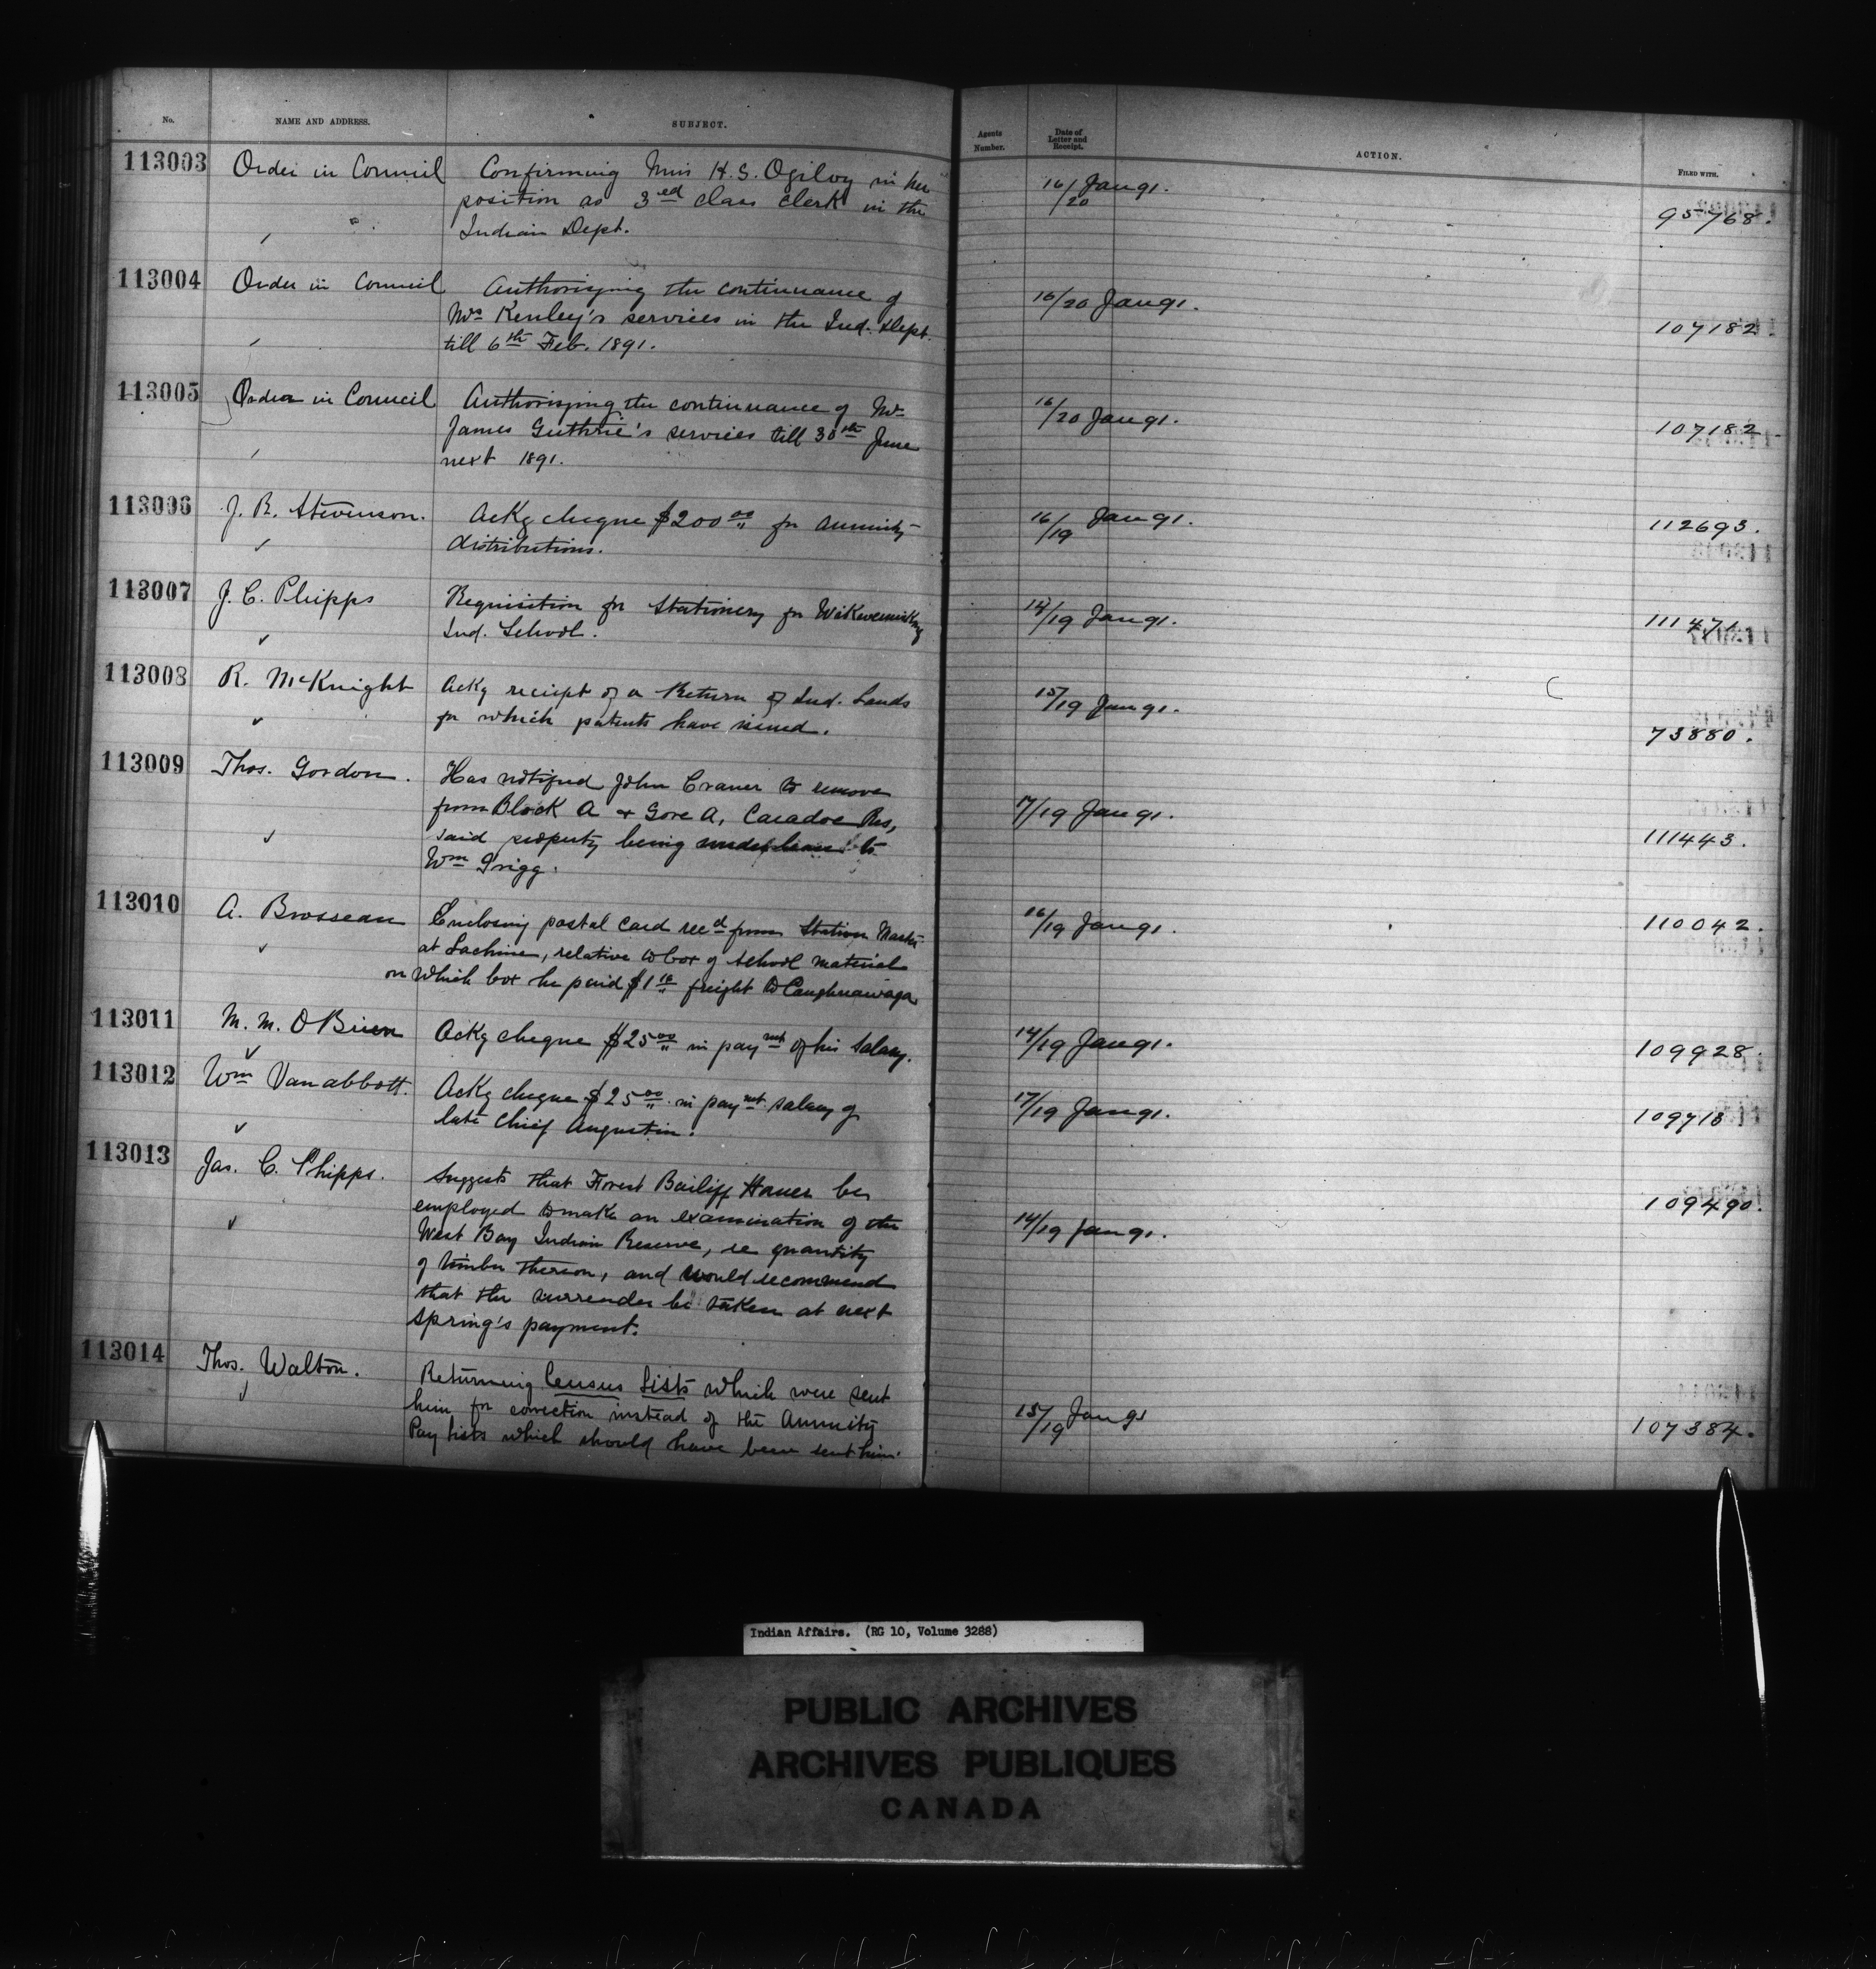 No. NAME AND ADDRESS. SUBJECT. Agents Number. Date of Letter and Receipt. ACTION. FILED WITH.
113003 Order in Council Confirming Miss H.S. Ogilvy in her 16/20 Jan 91. 95768.
position as 3ed class clerk in the
Indian Dept.
113004 Order in Council Authorizing the continuance of 16/20 Jan 91. 107182.
Mrs Kenley's services in the Ind. Dept.
till 6th Feb. 1891.
113005 Order in Council Authorizing the continuance of Mr 16/20 Jan 91. 107182
James Guthrie's services till 30th June
next 1891.
113006 J. R. Stevenson. Ackg cheque $200 00 for annuity 16/19 Jan 91. 112693.
distributions.
113007 J. C. Phipps Requisition for Stationery for Wikwemikong 14/19 Jan 91. 111471
Ind. School.
113008 R. McKnight Ackg receipt of a Return of Ind. Lands 15/19 Jan 91. 73880.
for which patents have issued.
113009 Thos. Gordon. Has notified John Craner to remove 7/19 Jan 91. 111443.
from Block A + Gore A, Caradoc Res,
said property being under lease to
Wm Grigg.
113010 A. Brosseau Enclosing postal card recd from Station Master 16/19 Jan 91. 110042.
at Lachine, relative to box of school material
on which box he paid $1 freight to Caughnawaga
113011 M. M. OBrien Ackg cheque $25 00 in paymt of his salary. 14/19 Jan 91. 109928.
113012 Wm Vanabbott. Ackg cheque $25 00 in paymt salary of 17/19 Jan 91. 109718
late Chief Augustin.
113013 Jas. C. Phipps. Suggests that Forest Bailiff be 14/19 Jan 91. 109490.
employed to make an examination of the
West Bay Indian Reserve, re quantity
of timber thereon, and would recommend
that the surrender be taken at next
spring's payment.
113014 Thos. Walton. Returning Census Lists which were sent 15/19 Jan 91 107384.
him for correction instead of the Annuity
Pay lists which should have been sent him.
Indian Affairs. (RG 10, Volume 3288)
PUBLIC ARCHIVES
ARCHIVES PUBLIQUES
CANADA